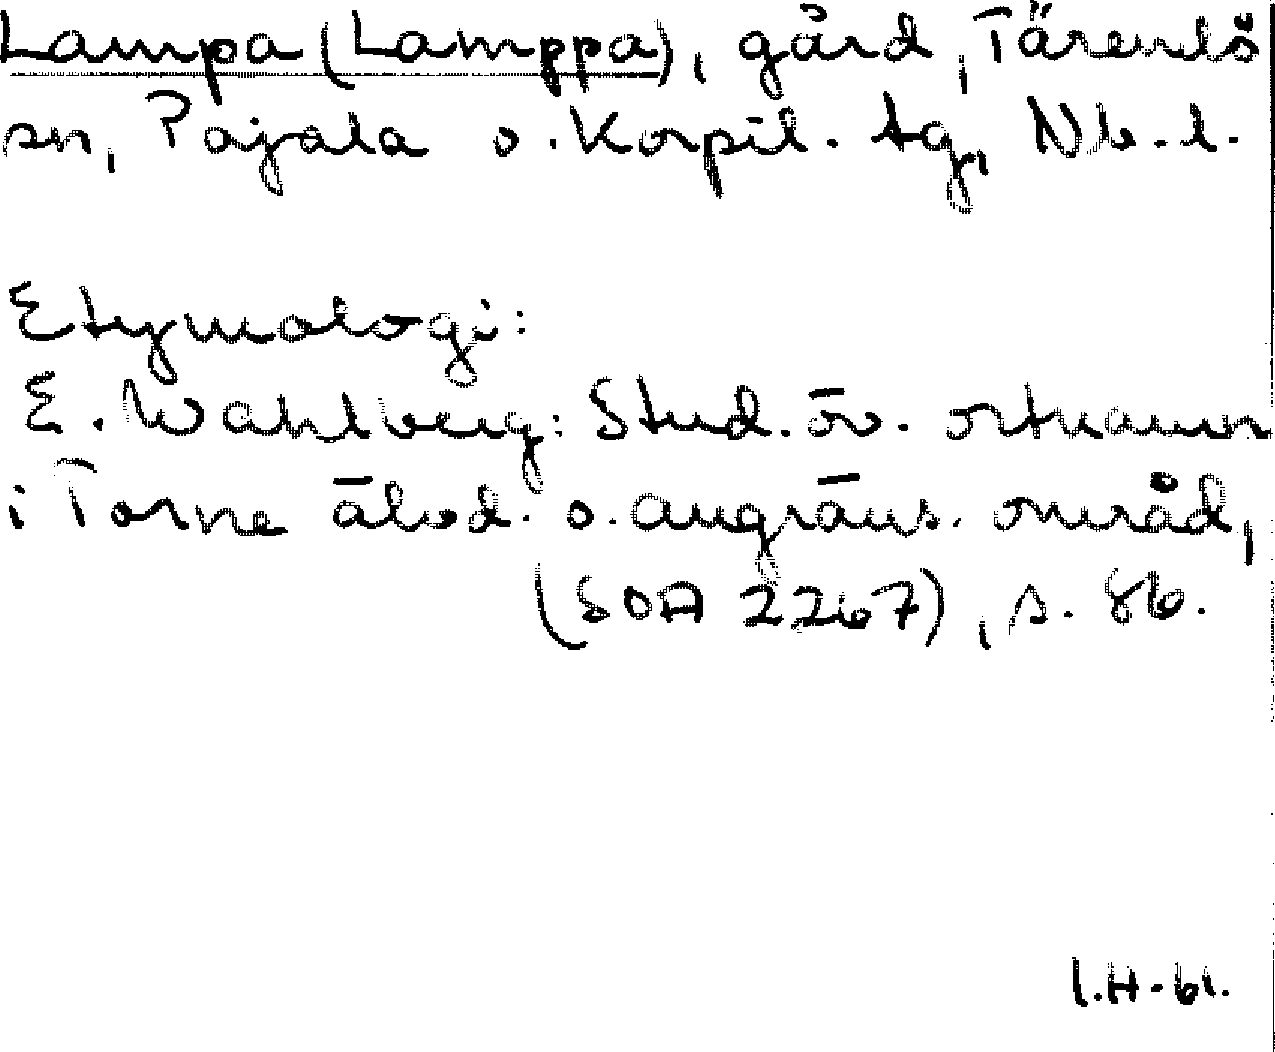 Lampa (Lamppa), gård, Tärendö
sn, Pajala o. Korpil. tg, Nb.l.
Etymologi:
E. Wahlberg: Stud. öv. ortnamn
i Torne älvd. o. angräns. område,
(SOA 2267), s. 86.
I.H-61.